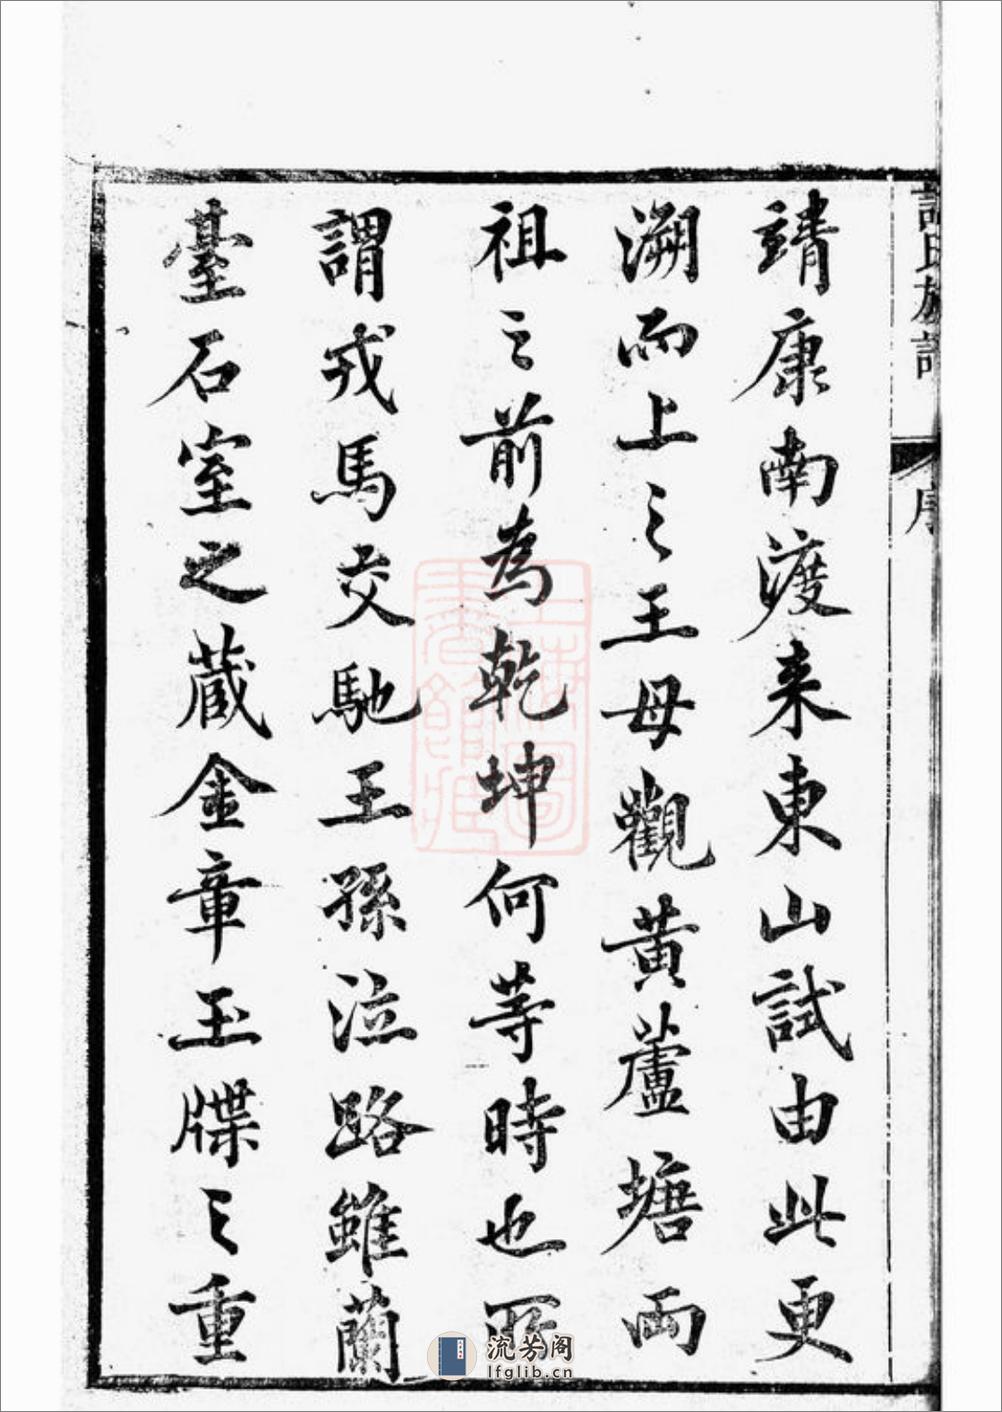 靖康南渡来東山試由此更
溯而上之王母觀黃蘆塘兩
祖之前為乾坤何等時也所
謂戎馬交馳王孫泣路雖蘭
臺石室之蔵金章玉牒之重
氏族譜
序
上海圖書館藏
流芳阁
lfglib.cn